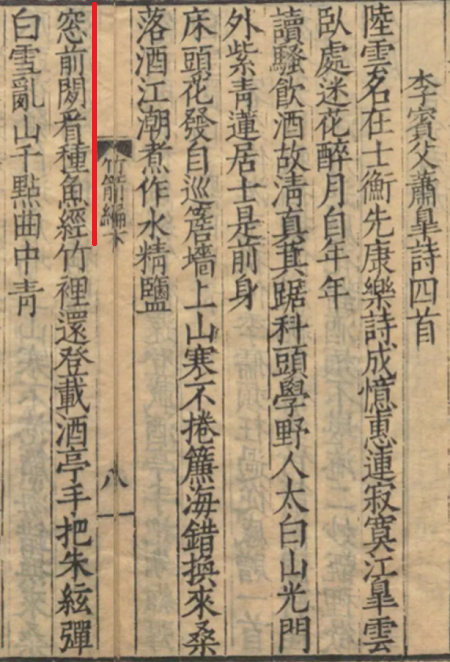 李賓父蕭皐詩四首
陸雲名在士衡先康樂詩成憶惠連寂寞江皐雲
臥處迷花醉月自年年
讀騷飲酒故清真其踞科頭學野人太白山光門
外紫青蓮居士是前身
床頭花發自巡簷墻上山寒不捲簾海錯換來桑
落酒江潮煮作水精鹽
竹箭編
八
窓前看種魚經竹裡還登載酒亭手把朱絃彈
白雪亂山千點曲中青